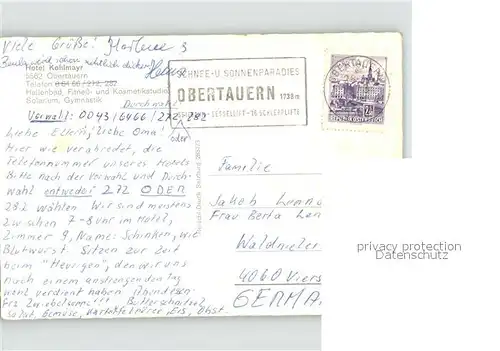 Viele Grüße! Marlene
3
Hotel Kohlmayr
5562 Obertauern
Telefon 0 64 56 / 272, 282
Hallenbad, Fitneß- und Kosmetikstudio,
Solarium, Gymnastik
Durchwahl
Vorwahl: 0043/6466/272, 282
oder
SCHNEE-U. SONNENPARADIES
OBERTAUERN 1738m
SESSELLIFT - 16 SCHLEPPLIFTE
OBERTAUERN
REPUBLIK ÖSTERREICH
Liebe Eltern, liebe Oma!
Hier wie verabredet, die
Telefonnummer unseres Hotels
Bitte nach der Vorwahl und Durch-
wahl entweder 272 ODER
282 wählen Wir sind meistens
zwischen 7-8 Uhr im Hotel,
Zimmer 9, Name: Schinken, wie
Blutwurst. Sitzen zur Zeit
beim "Heurigen", den wir uns
nach einem anstrengenden Tag
wohl verdient haben Abendessen:
Frz Zwiebelsuppe!!! Butterschnitzel
Salat, Gemüse, Kartoffelpüree, Eis, Obst.
Familie
Jakob
Frau Berta
Waldnieler
4060 Viers
GERMA
privacy protection
Datenschutz